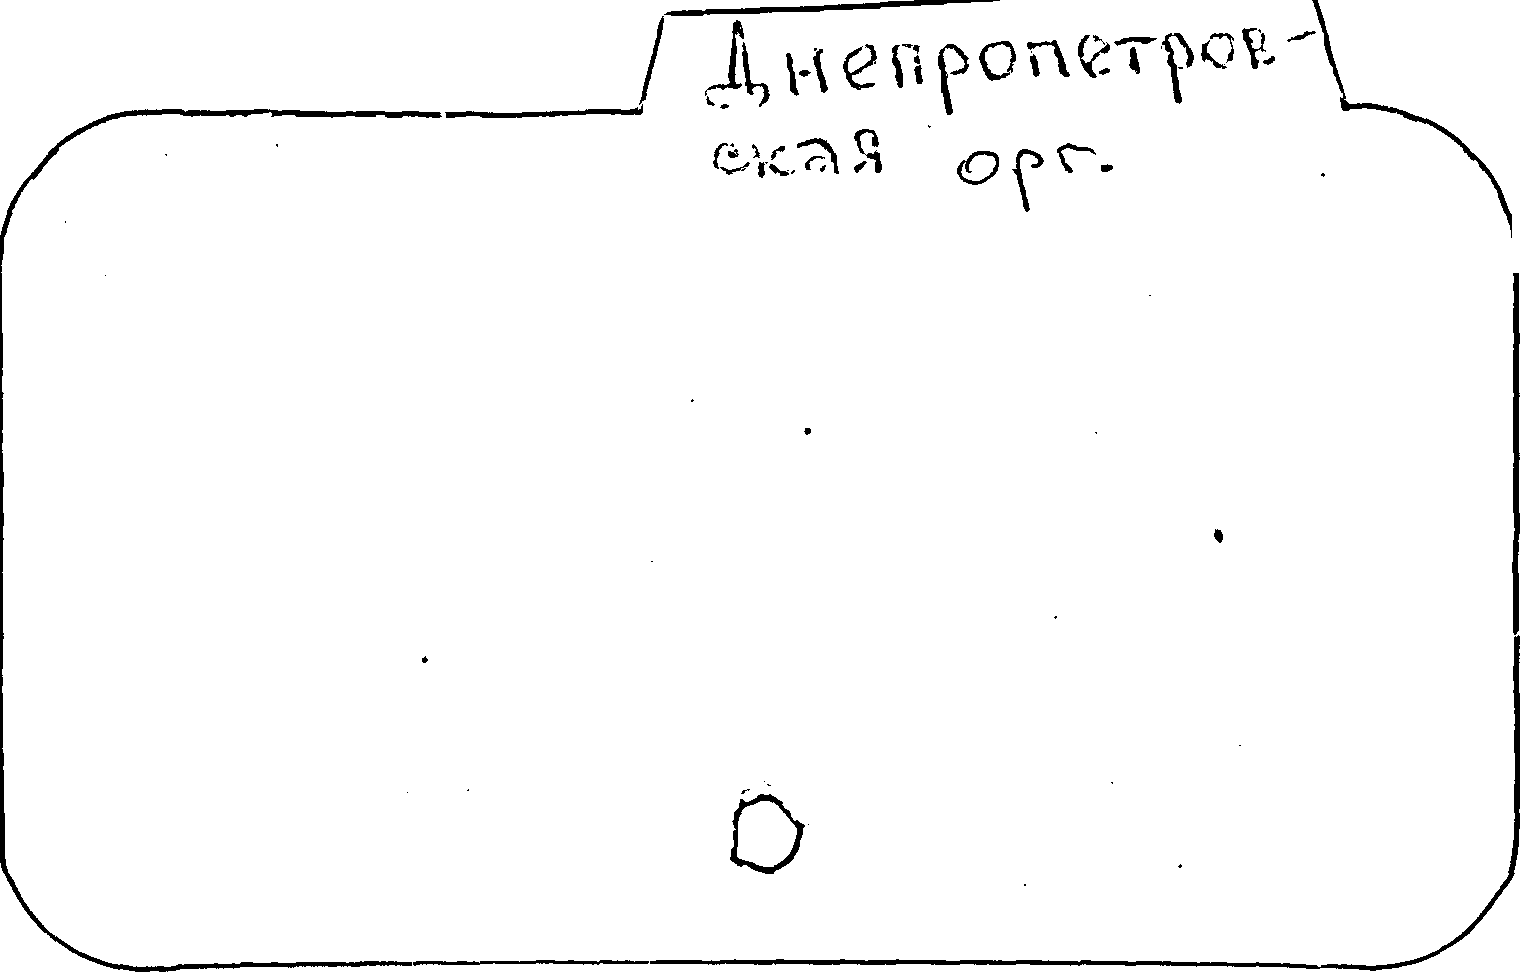 Днепропетров-
ская орг.